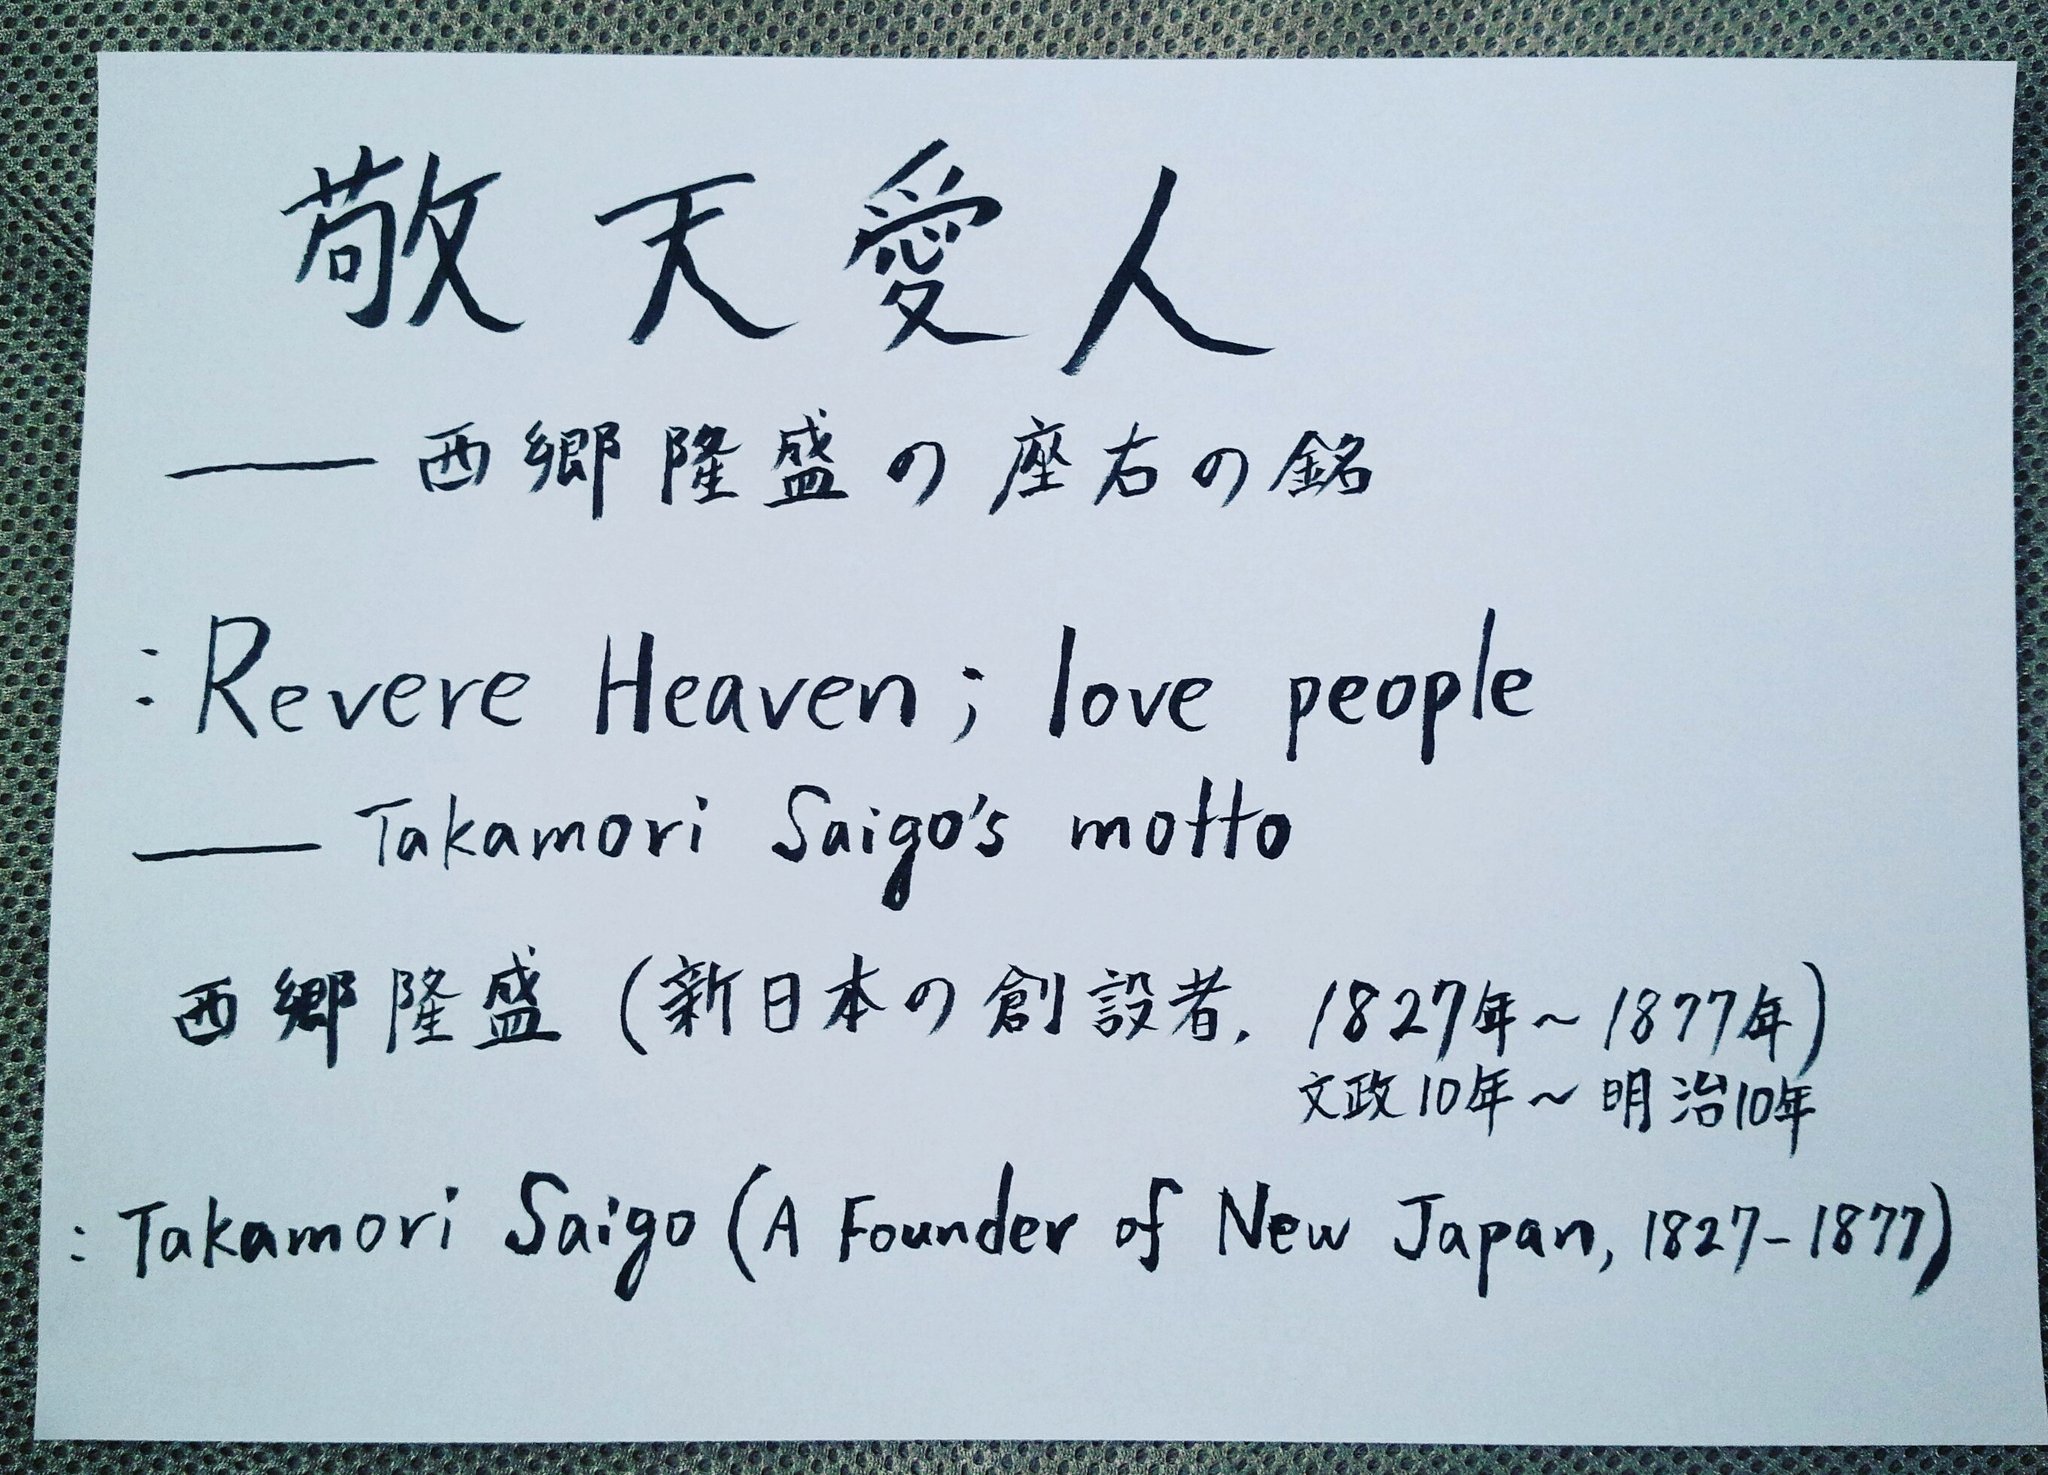 敬天愛人
——西郷隆盛の座右の銘
: Revere Heaven; love people
—— Takamori Saigo's motto
西郷隆盛(新日本の創設者, 1827年~1877年)
文政10年~明治10年
: Takamori Saigo (A Founder of New Japan, 1827-1877)